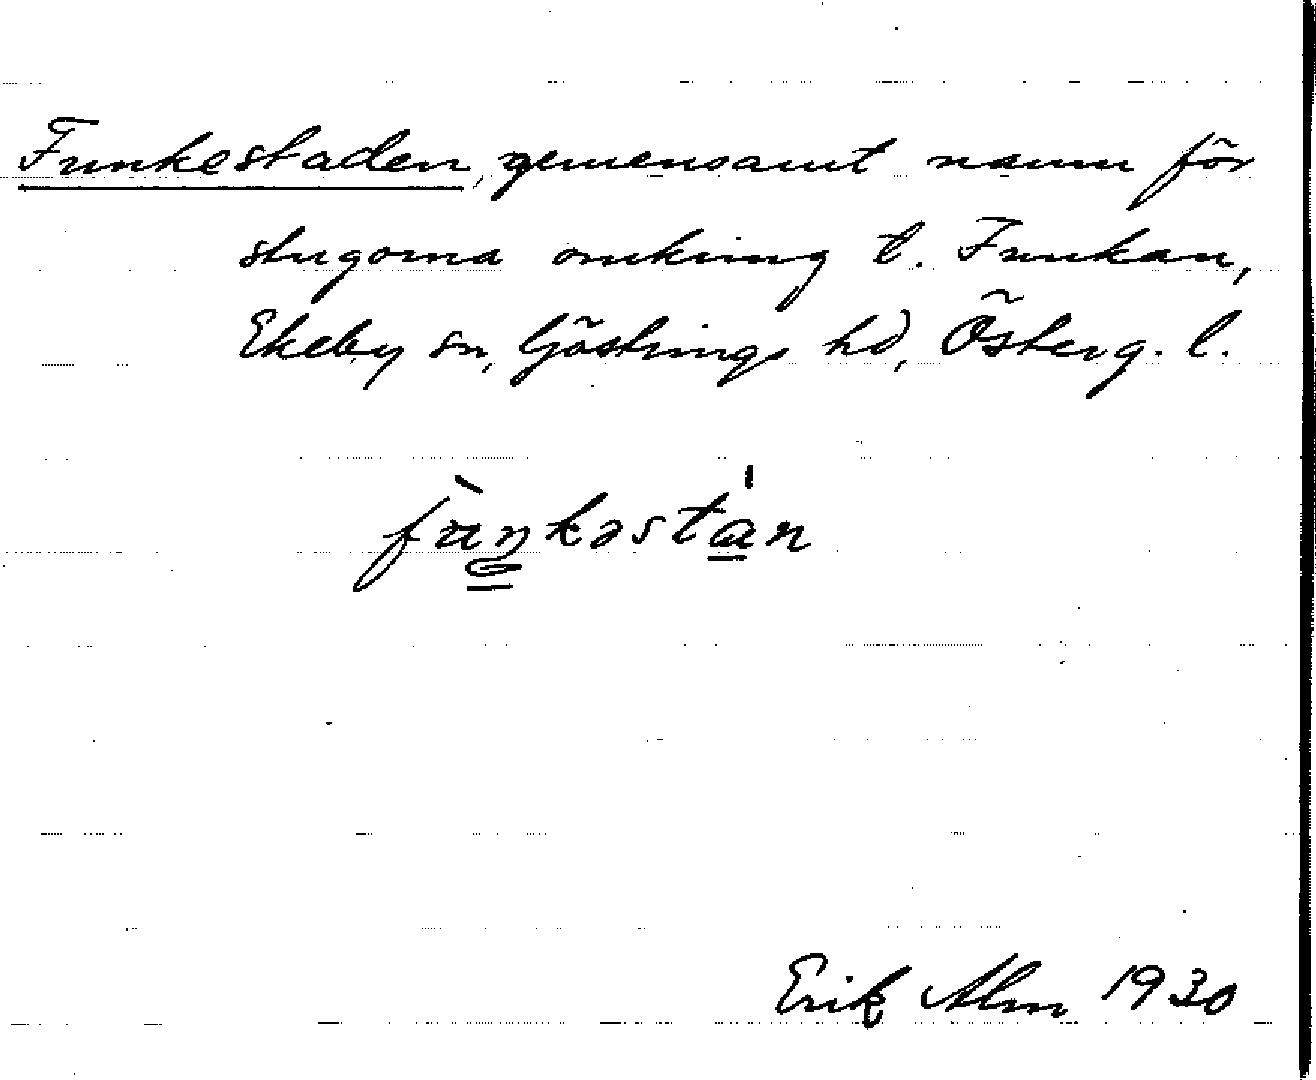 Funkestaden, gemensamt namn för
stugorna omkring t. Funkan,
Ekeby sn, Göstrings hd, Österg. l.
fùŋkəsta̍n
Erik Alm 1930